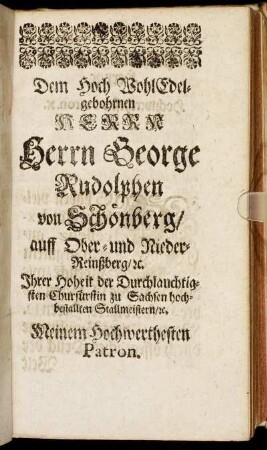 Dem Hoch WohlEdel-
gebohrnen
HERRN
Herrn George
Rudolphen
von Schönberg/
auff Ober- und Nieder-
Reinßberg/ꝛc.
Ihrer Hoheit der Durchlauchtig-
sten Churfürstin zu Sachsen hoch-
bestallten Stallmeistern/ꝛc.
Meinem Hochwerthesten
Patron.